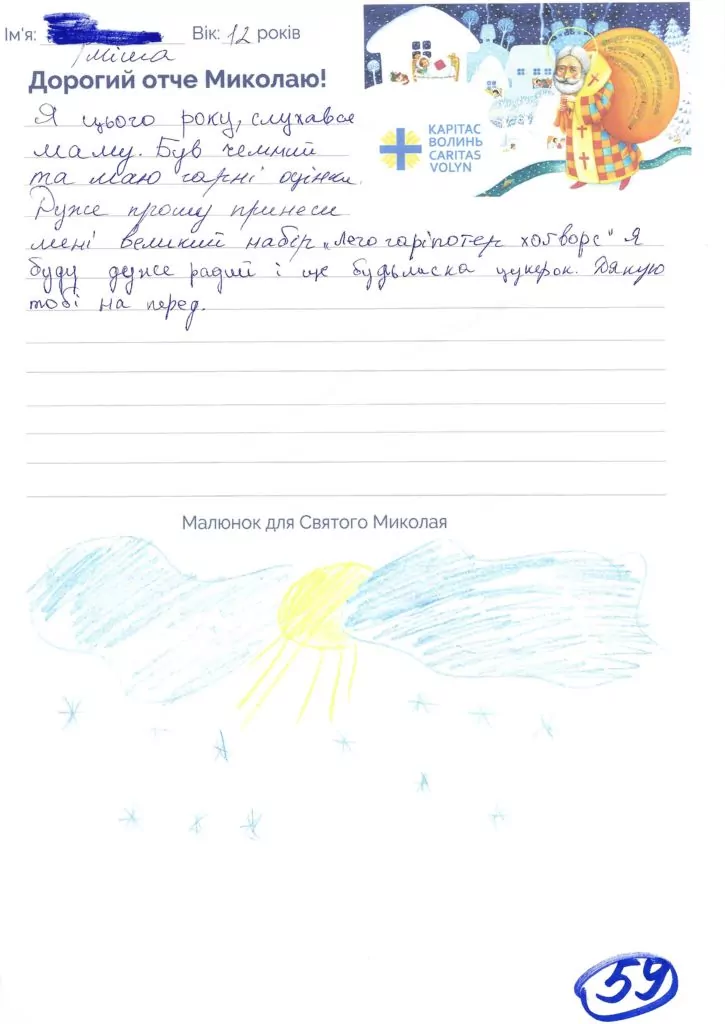 Ім'я: Вік: 12 років
Міша
Дорогий отче Миколаю!
КАРІТАС
ВОЛИНЬ
CARITAS
VOLYN
Я цього року, слухався
маму. Був чемний
та маю гарні оцінки.
Дуже прошу принеси
мені великий набір „Лего гаріпотер хогворс" Я
буду дуже радий і ще будьласка цукерок. Дякую
тобі на перед.
Малюнок для Святого Миколая
59